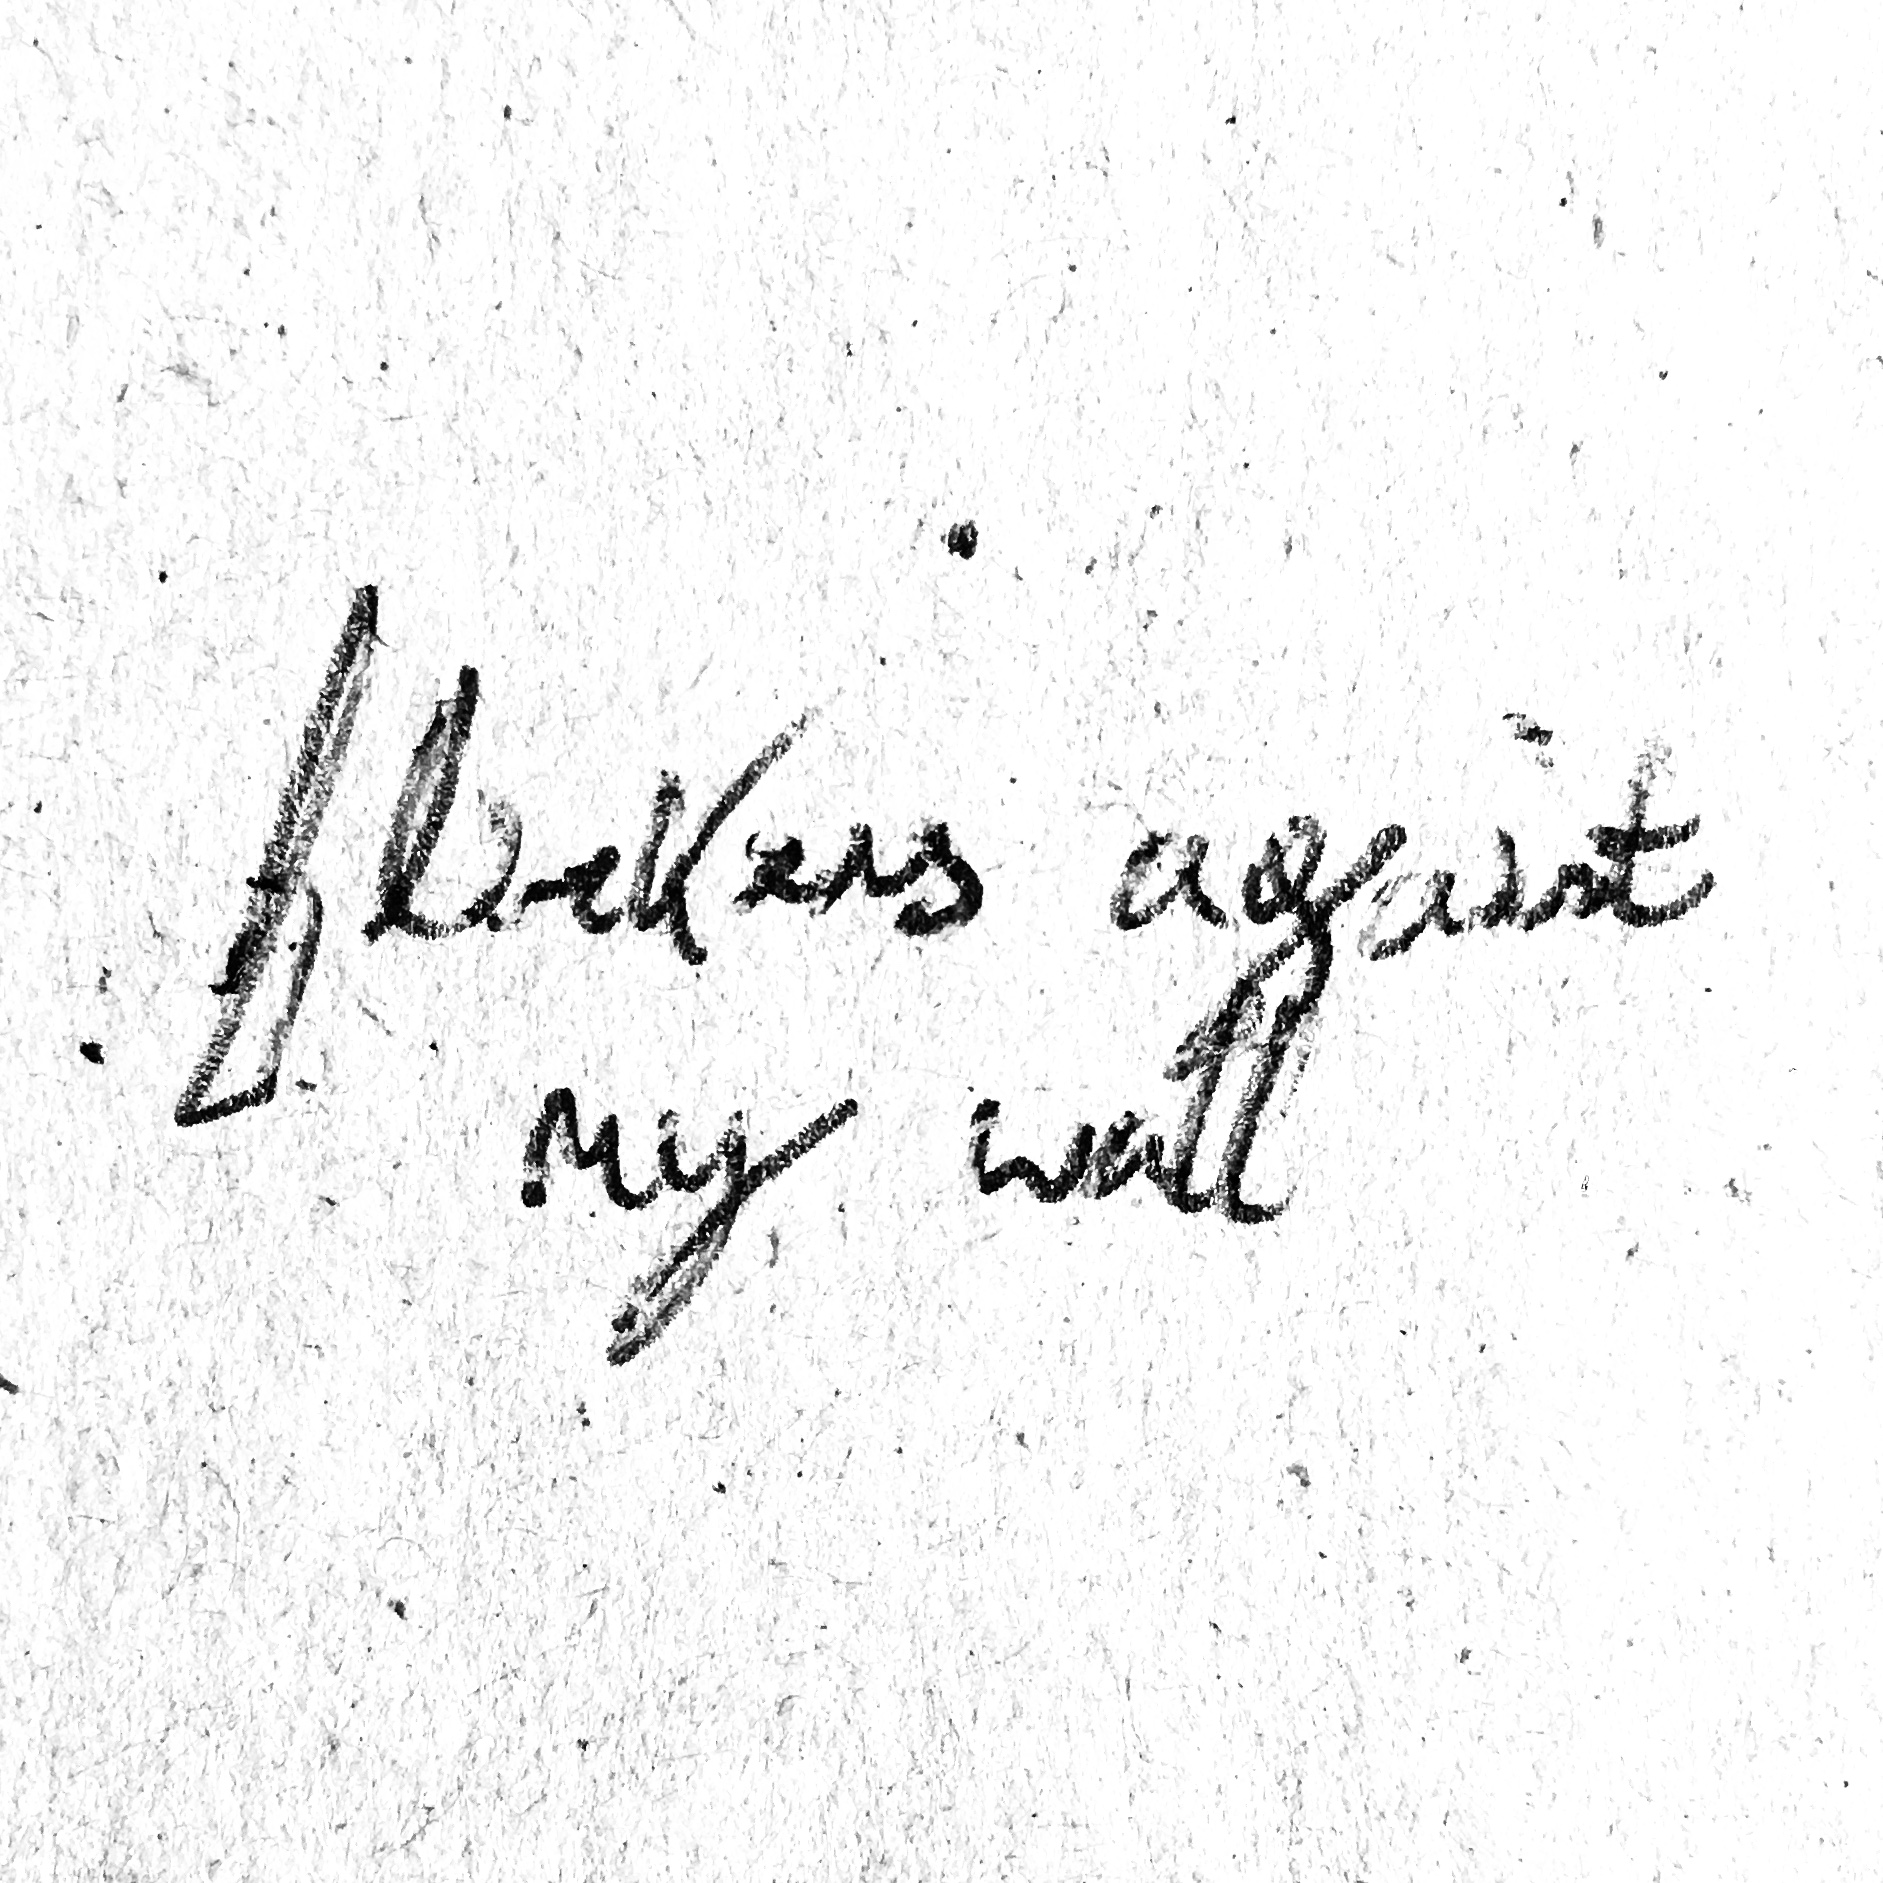 flickers against
my wall